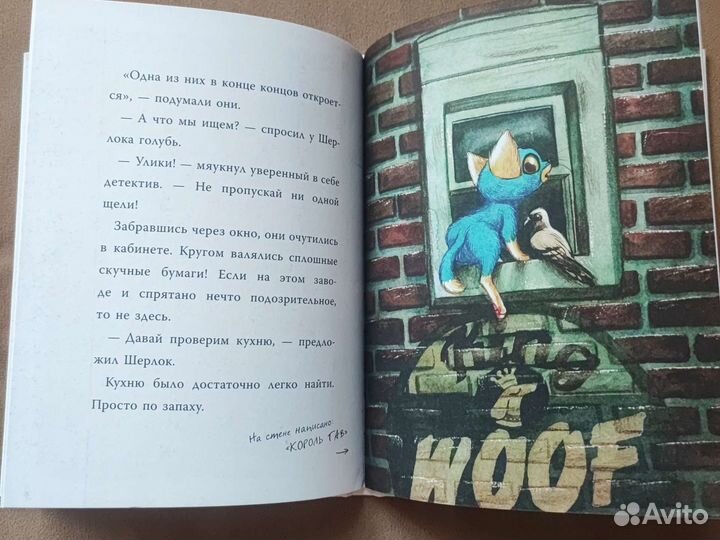 «Одна из них в конце концов откроет-
ся», — подумали они.
— А что мы ищем? — спросил у Шер-
лока голубь.
— Улики! — мяукнул уверенный в себе
детектив. — Не пропускай ни одной
щели!
Забравшись через окно, они очутились
в кабинете. Кругом валялись сплошные
скучные бумаги! Если на этом заво-
де и спрятано нечто подозрительное,
то не здесь.
— Давай проверим кухню, — предло-
жил Шерлок.
Кухню было достаточно легко найти.
Просто по запаху.
На стене написано:
«КОРОЛЬ ГАВ»
KING
WOOF
Avito